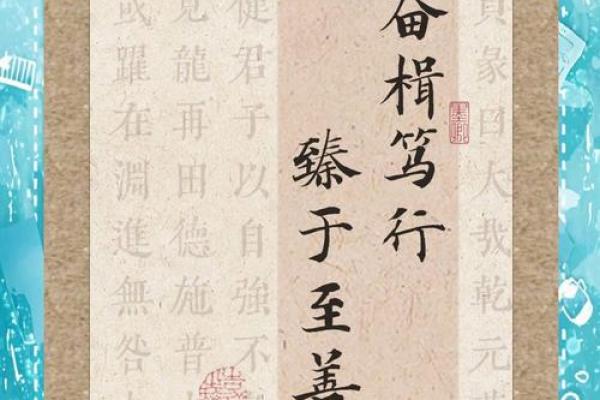 貞彖曰大哉乾元
奋楫笃行
臻于至善
健君子以自強不
見龍再田德施普
或躍在淵進無咎